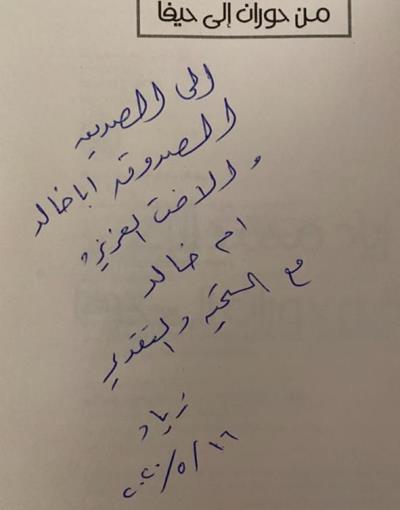 من حوران إلى حيفا
الى الصديق
الصدوق ابا خالد
والاخت العزيزة
ام خالد
مع التحية والتقدير
زياد
١٦/٥/٢٠٢٠